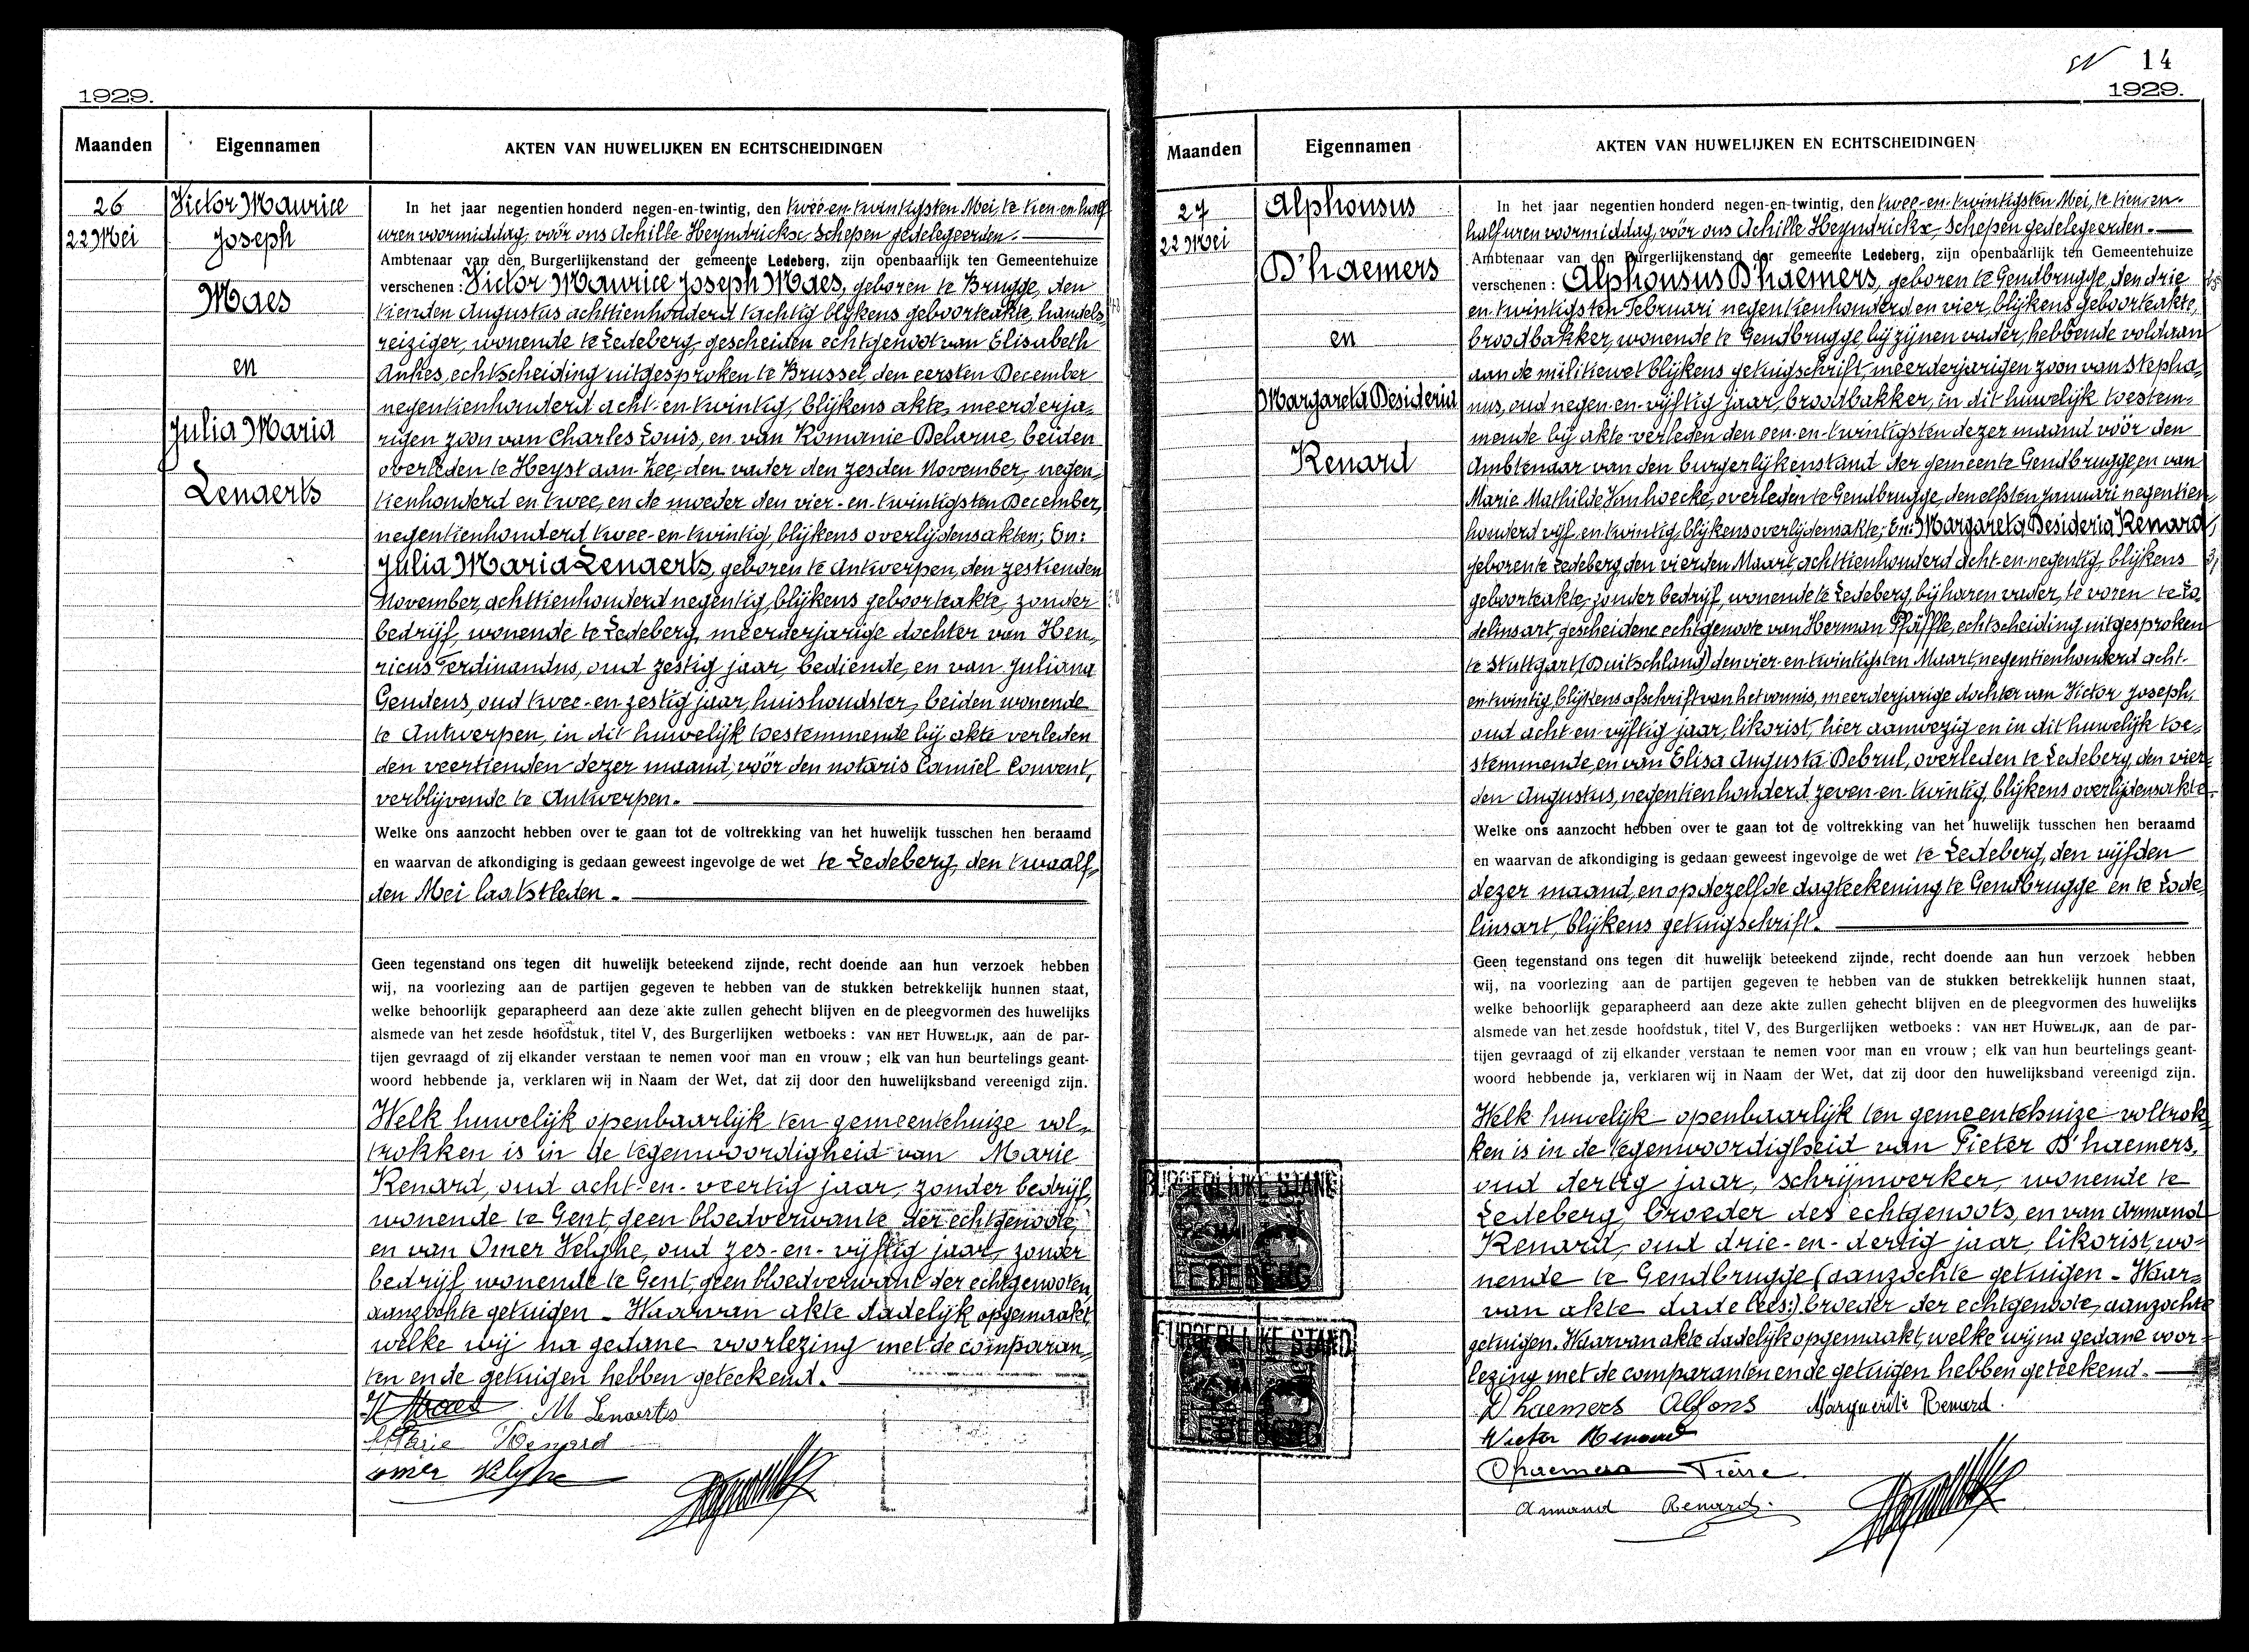 1929.
Maanden
Eigennamen
AKTEN VAN HUWELIJKEN EN ECHTSCHEIDINGEN
26
22 Mei
Victor Maurice
Joseph
Maes
en
Julia Maria
Lenaerts
In het jaar negentien honderd negen-en-twintig, den twee-en-twintigsten Mei, te tien-en-half
uren voormiddag, vóór ons Achille Heyndrickx Schepen gedelegeerden.
Ambtenaar van den Burgerlijkenstand der gemeente Ledeberg, zijn openbaarlijk ten Gemeentehuize
verschenen: Victor Maurice Joseph Maes, geboren te Brugge, den
tienden Augustus achttienhonderd tachtig blijkens geboorteakte, handels-
reiziger, wonende te Ledeberg, gescheiden echtgenoot van Elisabeth
echtscheiding uitgesproken te Brussel, den eersten December
negentienhonderd acht-en-twintig, blijkens akte, meerderja-
rigen zoon van Charles Louis, en van Romanie Delarue, beiden
overleden te Heyst aan Zee, den vader den zesden November, negen-
tienhonderd en twee, en de moeder den vier-en-twintigsten December,
negentienhonderd twee-en-twintig, blijkens overlijdensakten; En:
Julia Maria Lenaerts, geboren te Antwerpen, den zestienden
November, achttienhonderd negentig, blijkens geboorteakte, zonder
bedrijf, wonende te Ledeberg, meerderjarige dochter van Hen-
ricus Ferdinandus, oud zestig jaar, bediende, en van Juliana
Gendens, oud twee-en zestig jaar, huishoudster, beiden wonende
te Antwerpen, in dit huwelijk toestemmende bij akte verleden
den veertienden dezer maand, vóór den notaris Camiel Convent,
verblijvende te Antwerpen.
Welke ons aanzocht hebben over te gaan tot de voltrekking van het huwelijk tusschen hen beraamd
en waarvan de afkondiging is gedaan geweest ingevolge de wet te Ledeberg, den twaalf-
den Mei laatstleden.
Geen tegenstand ons tegen dit huwelijk beteekend zijnde, recht doende aan hun verzoek hebben
wij, na voorlezing aan de partijen gegeven te hebben van de stukken betrekkelijk hunnen staat,
welke behoorlijk geparapheerd aan deze akte zullen gehecht blijven en de pleegvormen des huwelijks
alsmede van het zesde hoofdstuk, titel V, des Burgerlijken wetboeks: VAN HET HUWELIJK, aan de par-
tijen gevraagd of zij elkander verstaan te nemen voor man en vrouw; elk van hun beurtelings geant-
woord hebbende ja, verklaren wij in Naam der Wet, dat zij door den huwelijksband vereenigd zijn.
Welk huwelijk openbaarlijk ten gemeentehuize vol-
trokken is in de tegenwoordigheid van Marie
Renard, oud acht-en-veertig jaar, zonder bedrijf,
wonende te Gent, geen bloedverwante der echtgenoote,
en van Omer Velghe, oud zes-en-vijftig jaar, zonder
bedrijf, wonende te Gent, geen bloedverwant der echtgenooten,
aanzochte getuigen - Waarvan akte dadelijk opgemaakt,
welke wij na gedane voorlezing met de comparan-
ten en de getuigen hebben geteekend.
V Maes M Lenaerts
Marie Renard
Omer Velghe
14
1929.
Maanden
Eigennamen
AKTEN VAN HUWELIJKEN EN ECHTSCHEIDINGEN
27
22 Mei
Alphonsus
D'haemers
en
Margareta Desideria
Renard
In het jaar negentien honderd negen-en-twintig, den twee-en-twintigsten Mei, te tien-en-
half uren voormiddag, vóór ons Achille Heyndrickx, Schepen gedelegeerden.
Ambtenaar van den Burgerlijkenstand der gemeente Ledeberg, zijn openbaarlijk ten Gemeentehuize
verschenen: Alphonsus D'haemers, geboren te Gendbrugge, den drie
en twintigsten Februari negentienhonderd en vier, blijkens geboorteakte,
broodbakker, wonende te Gendbrugge, bij zijnen vader, hebbende voldaan
aan de militiewet blijkens getuigschrift, meerderjarigen zoon van Stepha-
nus, oud negen-en-vijftig jaar, broodbakker, in dit huwelijk toestem-
mende bij akte verleden den een-en-twintigsten dezer maand vóór den
Ambtenaar van den burgerlijkenstand der gemeente Gendbrugge, en van
Marie Mathilde Vanhoecke, overleden te Gendbrugge, den elfsten Januari negentien-
honderd vijf en twintig, blijkens overlijdensakte; En: Margareta Desideria Renard,
geboren te Ledeberg, den vierden Maart, achttienhonderd acht-en-negentig, blijkens
geboorteakte, zonder bedrijf, wonende te Ledeberg, bij haren vader, te voren te Lo-
delinsart, gescheidene echtgenoote van Herman Pfäffle, echtscheiding uitgesproken
te Stuttgart (Duitschland) den vier-en-twintigsten Maart, negentienhonderd acht-
en-twintig, blijkens afschrift van het vonnis, meerderjarige dochter van Victor Joseph,
oud acht-en-vijftig jaar, likorist, hier aanwezig en in dit huwelijk toe-
stemmende, en van Elisa Augusta Debrul, overleden te Ledeberg, den vier-
den Augustus, negentienhonderd zeven-en-twintig, blijkens overlijdensakte.
Welke ons aanzocht hebben over te gaan tot de voltrekking van het huwelijk tusschen hen beraamd
en waarvan de afkondiging is gedaan geweest ingevolge de wet te Ledeberg, den vijfden
dezer maand, en op dezelfde dagteekening te Gendbrugge en te Lode-
linsart, blijkens getuigschrift.
Geen tegenstand ons tegen dit huwelijk beteekend zijnde, recht doende aan hun verzoek hebben
wij, na voorlezing aan de partijen gegeven te hebben van de stukken betrekkelijk hunnen staat,
welke behoorlijk geparapheerd aan deze akte zullen gehecht blijven en de pleegvormen des huwelijks
alsmede van het zesde hoofdstuk, titel V, des Burgerlijken wetboeks: VAN HET HUWELIJK, aan de par-
tijen gevraagd of zij elkander verstaan te nemen voor man en vrouw; elk van hun beurtelings geant-
woord hebbende ja, verklaren wij in Naam der Wet, dat zij door den huwelijksband vereenigd zijn.
Welk huwelijk openbaarlijk ten gemeentehuize voltrok-
ken is in de tegenwoordigheid van Pieter D'haemers,
oud dertig jaar, schrijnwerker, wonende te
Ledeberg, broeder des echtgenoots, en van Armand
Renard, oud drie-en-dertig jaar, likorist, wo-
nende te Gendbrugge (aanzochte getuigen - Waar-
van akte dade lees:) broeder der echtgenoote, aanzochte
getuigen. Waarvan akte dadelijk opgemaakt, welke wij na gedane voor-
lezing met de comparanten en de getuigen hebben geteekend.
BURGERLIJKE STAND
LEDEBERG
BURGERLIJKE STAND
LEDEBERG
D'haemers Alfons Marguerite Renard.
Victor Renard
Dhaemers Pierre
Armand Renard.